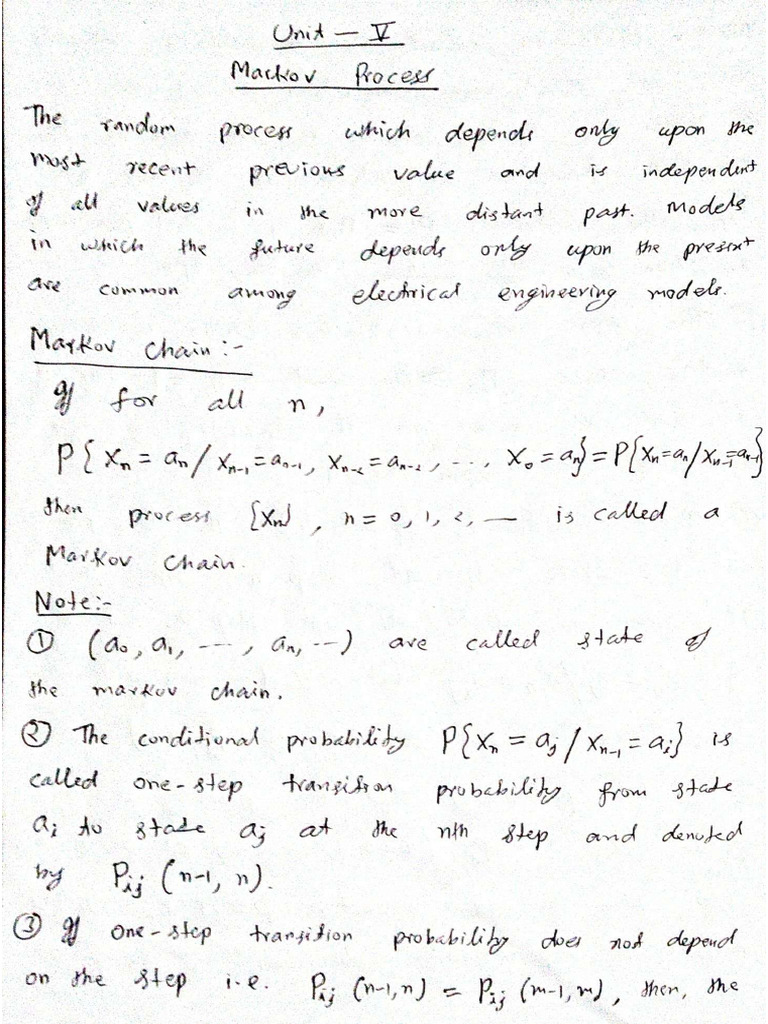 Unit - V
Markov Process
The random process which depends only upon the
most recent previous value and is independent
of all values in the more distant past. Models
in which the future depends only upon the present
are common among electrical engineering models.
Markov chain:-
If for all n,
P{Xn = an / Xn-1 = an-1, Xn-2 = an-2, ..., X0 = an} = P{Xn = an / Xn-1 = an-1}
then process {Xn}, n = 0, 1, 2, — is called a
Markov chain.
Note:-
① (a0, a1, ---, an, --) are called state of
the markov chain.
② The conditional probability P{Xn = aj / Xn-1 = ai} is
called one-step transition probability from state
ai to state aj at the nth step and denoted
by Pij (n-1, n).
③ If one-step transition probability does not depend
on the step i.e. Pij (n-1, n) = Pij (m-1, m), then, the